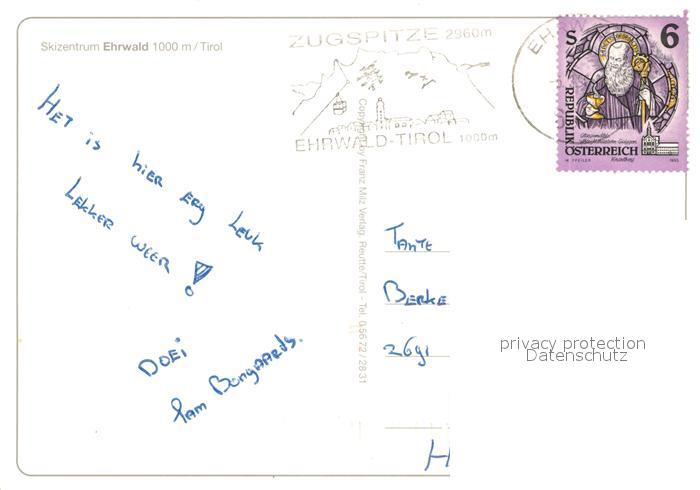 Skizentrum Ehrwald 1000 m / Tirol
ZUGSPITZE 2960m
EHRWALD-TIROL 1000m
EH
S 6
REPUBLIK
ÖSTERREICH
1993
Copyright by Franz Milz Verlag, Reutte/Tirol - Tel. 05672/2831
HET is hier erg leuk
Lekker weer!
Doei
Pam Bongaards.
Tante
Berke
2691
H
privacy protection
Datenschutz